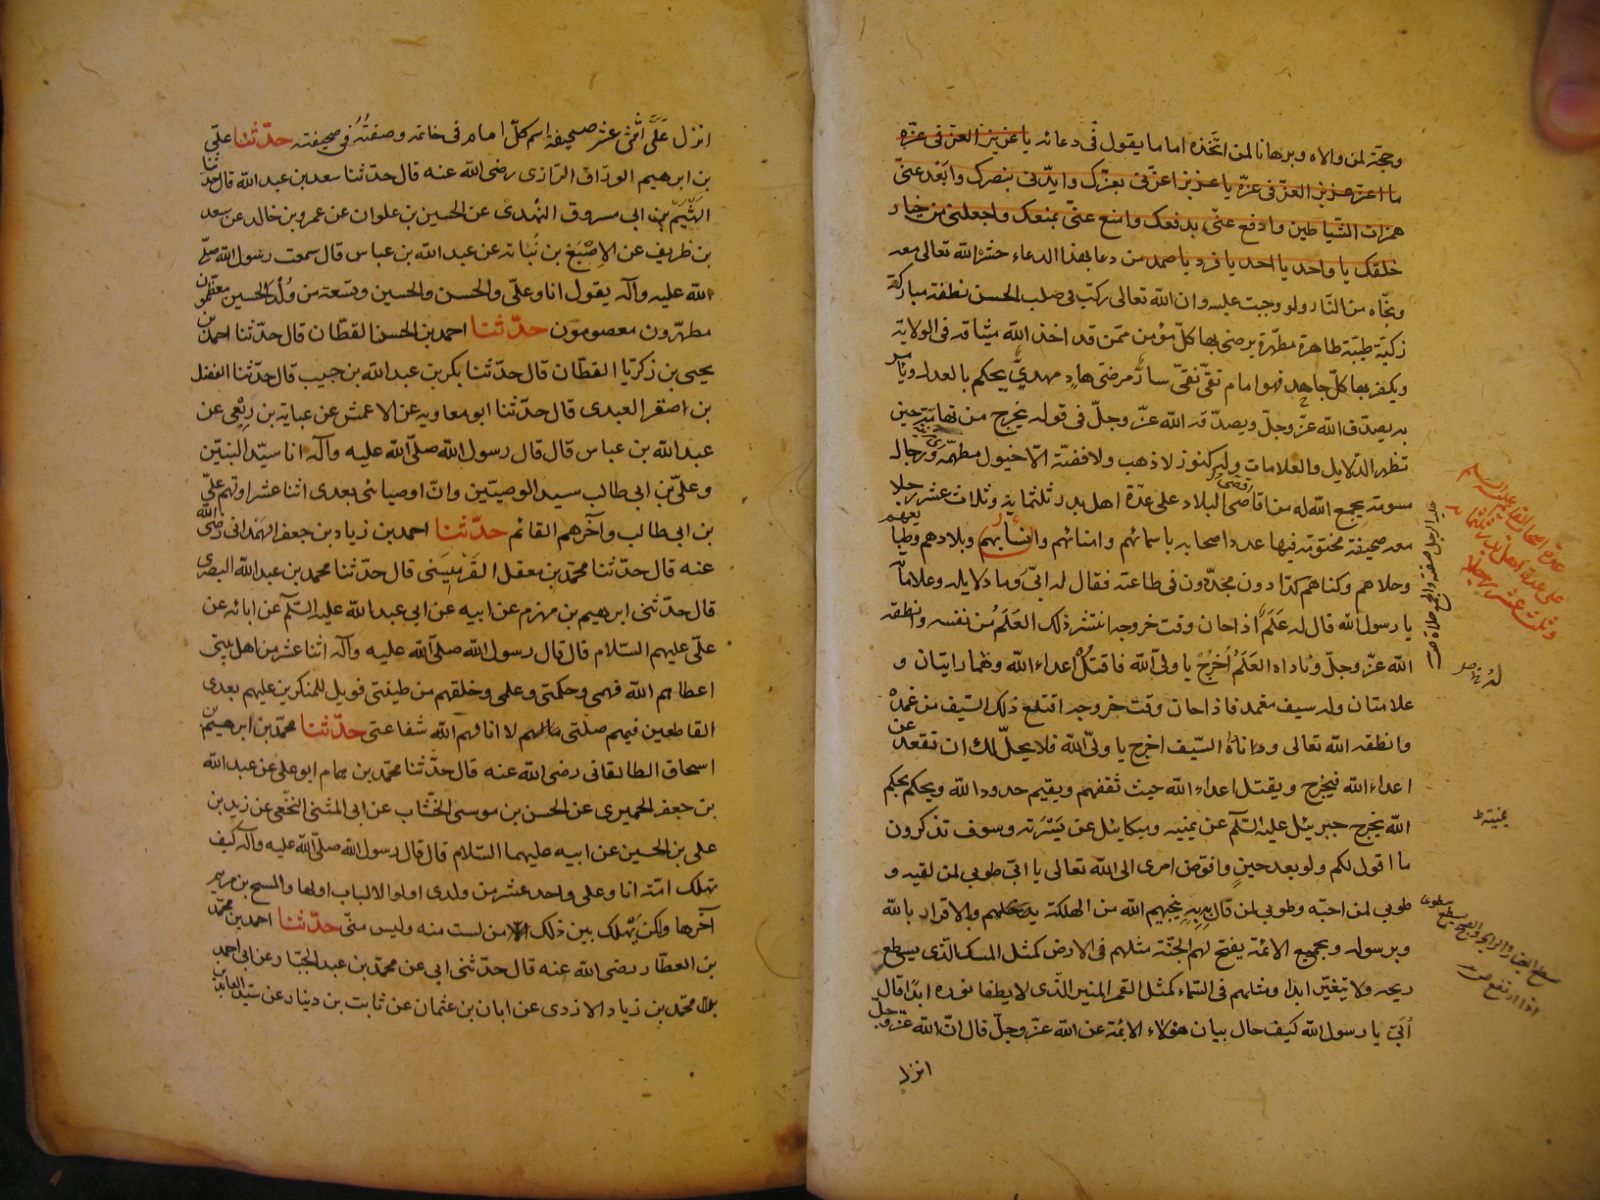 وحجّة لمن والاه وبرهانا لمن اتّخذه اماما يقول فى دعائه يا عزيز العزّ فى عزّه
ما اعزّ عزيز العزّ فى عزّه يا عزيز اعزّنى بعزّك وايّدنى بنصرك وابعد عنّى
همزات الشياطين وادفع عنّى بدفعك وامنع عنّى بمنعك واجعلنى من خيار
خلقك يا واحد يا احد يا فرد يا صمد من دعا بهذا الدعاء حشره الله تعالى معه
ونجّاه من النّار ولو وجبت عليه وان الله تعالى ركّب فى صلب الحسن نطفة مباركة
زكيّة طيّبة طاهرة مطهّرة يرضى بها كلّ مؤمن ممّن قد اخذ الله ميثاقه فى الولاية
ويكفر بها كلّ جاحد فهو امام تقىّ نقىّ سارّ مرضىّ هادٍ مهدىّ يحكم بالعدل ويامر
به يصدّق الله عزّ وجلّ ويصدّقه الله عزّ وجلّ فى قوله يخرج من تهامة حين
تظهر الدّلايل والعلامات وله كنوز لا ذهب ولا فضّة الّا خيول مطهّمة ورجال
مسومة يجمع الله له من اقاصى البلاد على عدّة اهل بدر ثلثمايه وثلاث عشر رجلا
معه صحيفة مختومة فيها عدد اصحابه باسمائهم وانسابهم وبلادهم وطبايعهم
وحلاهم وكناهم كدّادون مجدّون فى طاعته فقال له ابىّ وما دلايله وعلاماته
يا رسول الله قال له عَلَمٌ اذا حان وقت خروجه انتشر ذلك العَلَمُ من نفسه وانطقه
الله عزّ وجلّ وناداه العَلَمُ اُخرُجْ يا ولىّ الله فاقتُلْ اعداء الله وهما رايتان و
علامتان وله سيف مغمد فاذا حان وقت خروجه اقتلع ذلك السّيف من غمده
وانطقه الله تعالى وناداه السّيف اخرج يا ولىّ الله فلا يحلّ لك ان تقعد عن
اعداء الله فيخرج ويقتل اعداء الله حيث ثقفهم ويقيم حدود الله ويحكم بحكم
الله يخرج جبرئيل عليه السّلم عن يمنيه وميكائيل عن يَسْرَته وسوف تذكرون
ما اقول لكم ولو بعد حينٍ وافوّض امرى الى الله تعالى يا ابىّ طوبى لمن لقيه و
طوبى لمن احبّه وطوبى لمن قال بِهِ ينجيهم الله من الهلكة والاقرار بالله
وبرسوله وبجميع الائمّة يفتح لهم الجنّة مثلهم فى الارض كمثل المسك الّذى يسطع
ريحه ولا يتغيّر ابدا ومثلهم فى السّماء كمثل القمر المنير الّذى لا يطفا نوره ابدًا قال
اُبَىّ يا رسول الله كيف حال بيان هؤلاء الائمّة عن الله عزّ وجلّ قال انّ الله عزّ وجل
انزل
عدة اصحاب القايم عليه السلم
على عدة اهل بدر ثلثمائة
وثلث عشر رجلا
انزل علىّ اثنى عشر صحيفة اسم كلّ امام فى خاتمه وصفتُهُ فى صحيفته حدّثنا علىّ
بن ابرهيم الورّاق الرّازى رضى الله عنه قال حدّثنا سعد بن عبد الله قال حدثنا
الهَيْثَم بن ابى مسروق النّهدىّ عن الحسين بن علوان عن عمرو بن خالد عن سعد
بن ظريف عن الاصْبَغ بن نُباته عن عبد الله بن عباس قال سمعت رسول الله صلّى
الله عليه وآله يقول انا وعلىّ والحسن والحسين وتسعة من وُلْد الحسين
مطهّرون معصومون حدّثنا احمد بن الحسن القطّان قال حدّثنا احمد بن
يحيى بن زكريّا القطّان قال حدّثنا بكر بن عبد الله بن حبيب قال حدّثنا الفضل
بن اصقر العبدى قال حدّثنا ابو معاويه عن الاعمش عن عباية بن رِبْعى عن
عبد الله بن عباس قال قال رسول الله صلّى الله عليه وآله انا سيّد النبيّين
وعلىّ بن ابى طالب سيد الوصيّين وانّ اوصيائى بعدى اثنا عشر اوّلهم علىّ
بن ابى طالب وآخرهم القائم حدّثنا احمد بن زياد بن جعفر الهمدانى رضى الله
عنه قال حدّثنا محمّد بن معقل القَرْمِيسَنى قال حدّثنا محمد بن عبد الله البصرى
قال حدّثنى ابرهيم بن مهزم عن ابيه عن ابى عبد الله عليه السّلم عن ابائه عن
علىّ عليهم السّلام قال قال رسول الله صلّى الله عليه وآله اثنا عشر من اهل بيتى
اعطاهم الله فهمى وحكمتى وعلمى وخلقهم من طينتى فويل للمنكرين عليهم بعدى
القاطعين فيهم صلتى مالهم لا انالهم الله شفاعتى حدّثنا محمّد بن ابرهيم بن
اسحاق الطالقانى رضى الله عنه قال حدّثنا محمّد بن همام ابو على عن عبد الله
بن جعفر الحميرى عن الحسن بن موسى الخشّاب عن ابى المثنى النخعى عن زيد بن
على بن الحسين عن ابيه عليهما السّلام قال قال رسول الله صلّى الله عليه وآله كيف
تهلك امّة انا وعلى واحد عشر من ولدى اولوا الالباب اولها والمسيح بن مريم
آخرها ولكن يَهْلك بين ذلك من لست منه وليس منّى حدّثنا احمد بن محمّد
بن العطّار رضى الله عنه قال حدّثنى ابى عن محمّد بن عبد الجبّار وعن ابى احمد
محمّد بن زياد الازدى عن ابان بن عثمان عن ثابت بن دينار عن سيّد العابدين